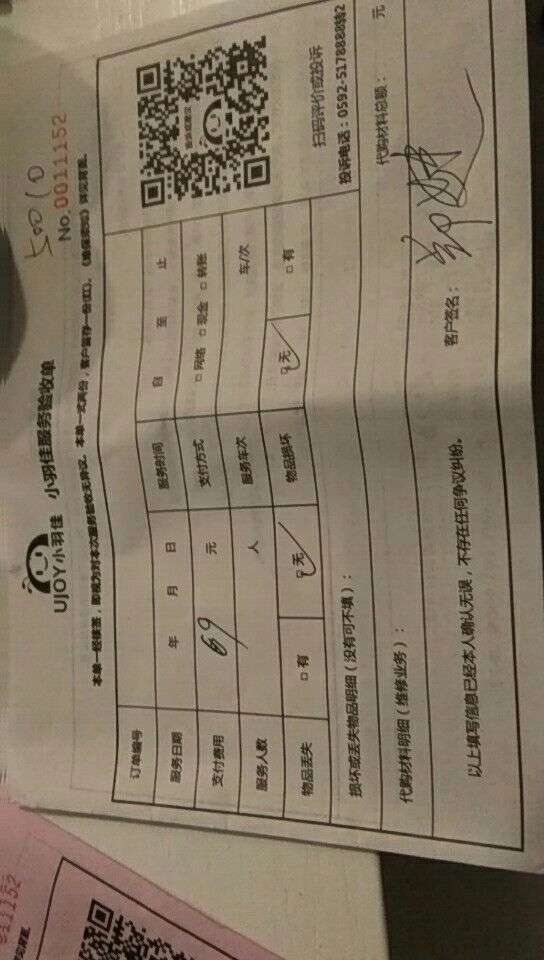 50010
No.0011152
UJOY小羽佳 小羽佳服务验收单
本单一经接签，即视为对本次服务验收无异议。本单一式两份，客户留存一份(红)。《 》详见背面。
订单编号
服务日期 年 月 日 服务时间 自 至 止
支付费用 69 元 支付方式 □网络 □现金 □转账
服务人数 人 服务车次 车/次
物品丢失 □有 ☑无 物品损坏 ☑无 □有
扫码评价或投诉
投诉电话：0592-5178888转2
损坏或丢失物品明细（没有可不填）：
代购材料明细（维修业务）： 代购材料总额： 元
以上填写信息已经本人确认无误，不存在任何争议纠纷。 客户签名：
0011152
详见背面。